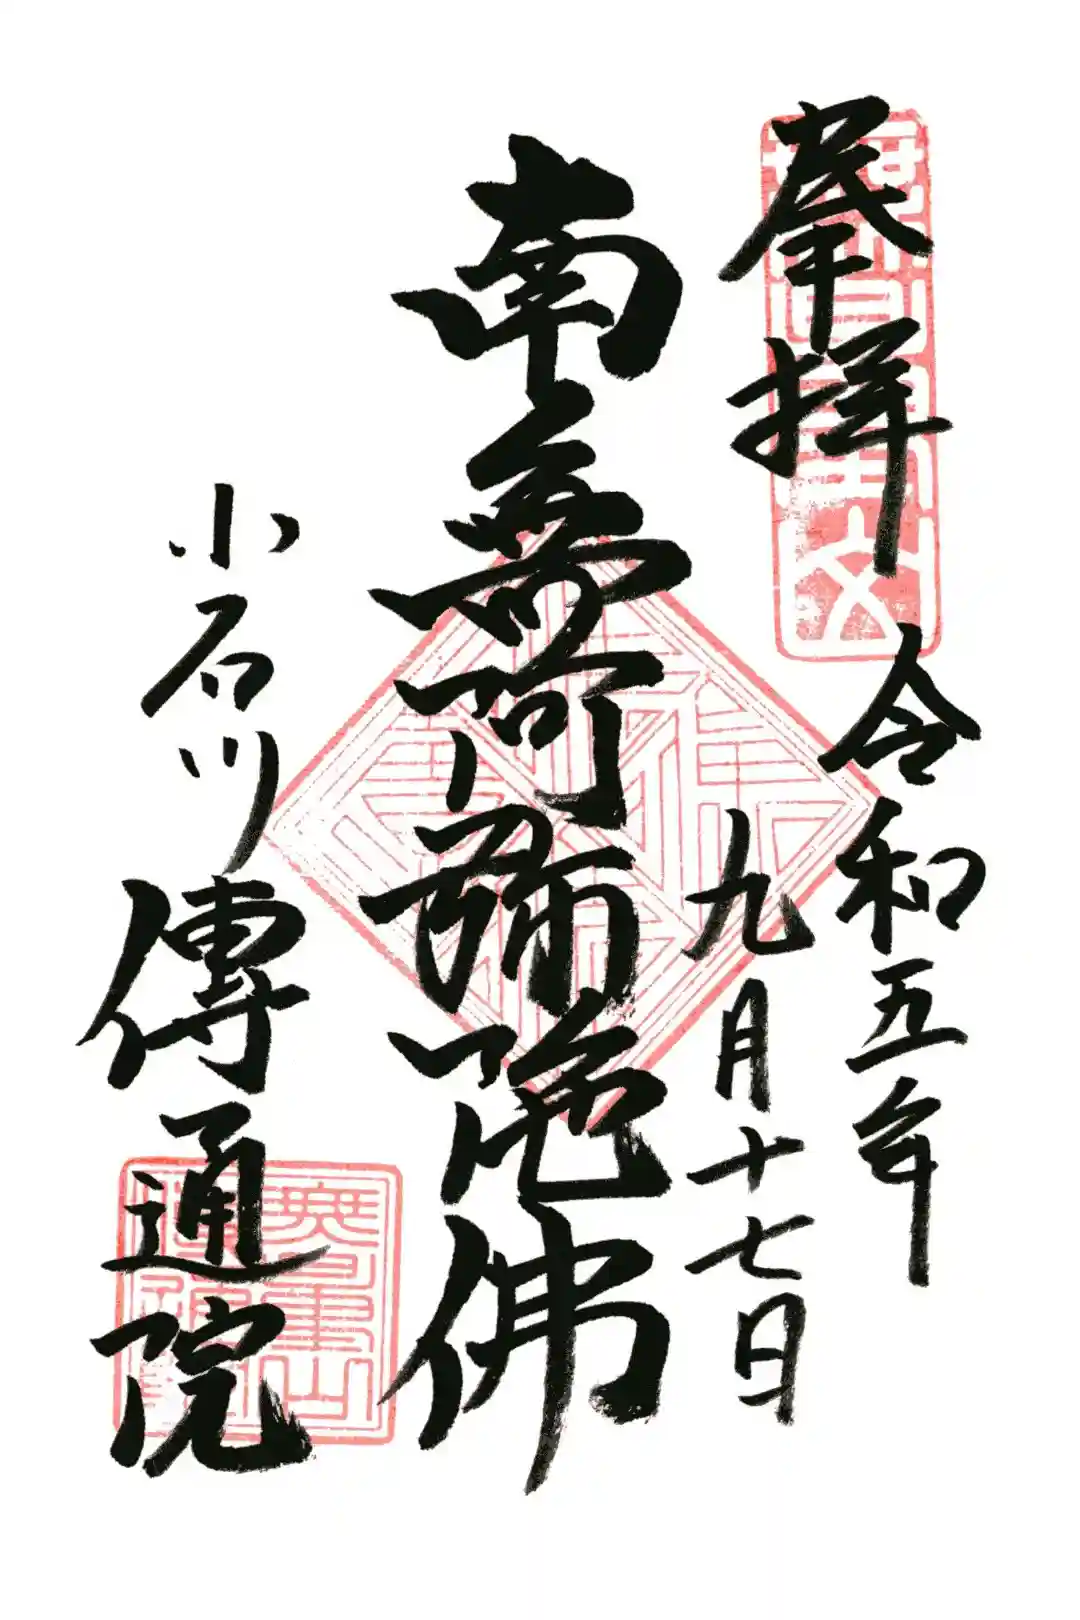 奉拝
令和五年
九月十七日
南無阿彌陀佛
小石川
傳通院
無量山